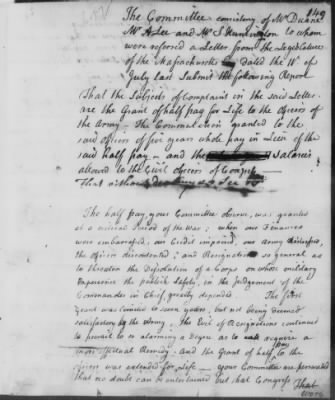 149
The Committee consisting of Mr Duane
Mr A Lee and Mr S Huntington to whom
were referred a Letter from the Legislature
of the Massachusetts Dated the 11th of
July last Submit the following Report
That the Subjects of Complaint in the said Letter
are the Grant of half pay for Life to the officers of
the Army - The Commutation granted to the
said officers of five years whole pay in Lieu of the
said half pay - and the Salaries
allowed to the Civil officers of Congress
That
The half pay, your Committee observe, was granted
at a critical Period of the War; when our Finances
were embarrassed, our Credit impaired, our Army dissatisfied,
the officers discontented; and Resignations so general as
to threaten the Dissolution of a Corps on whose military
Experience the publick Safety, in the Judgement of the
Commander in Chief, greatly depended. The first
Grant was limited to seven years, but not being deemed
satisfactory by the Army. The Evil of Resignations continued
to prevail to so alarming a Degree as to require a
more effectual Remedy. And the Grant of half pay to the
officers was extended for Life - your Committee are persuaded
that no doubt can be entertained but that Congress That
were